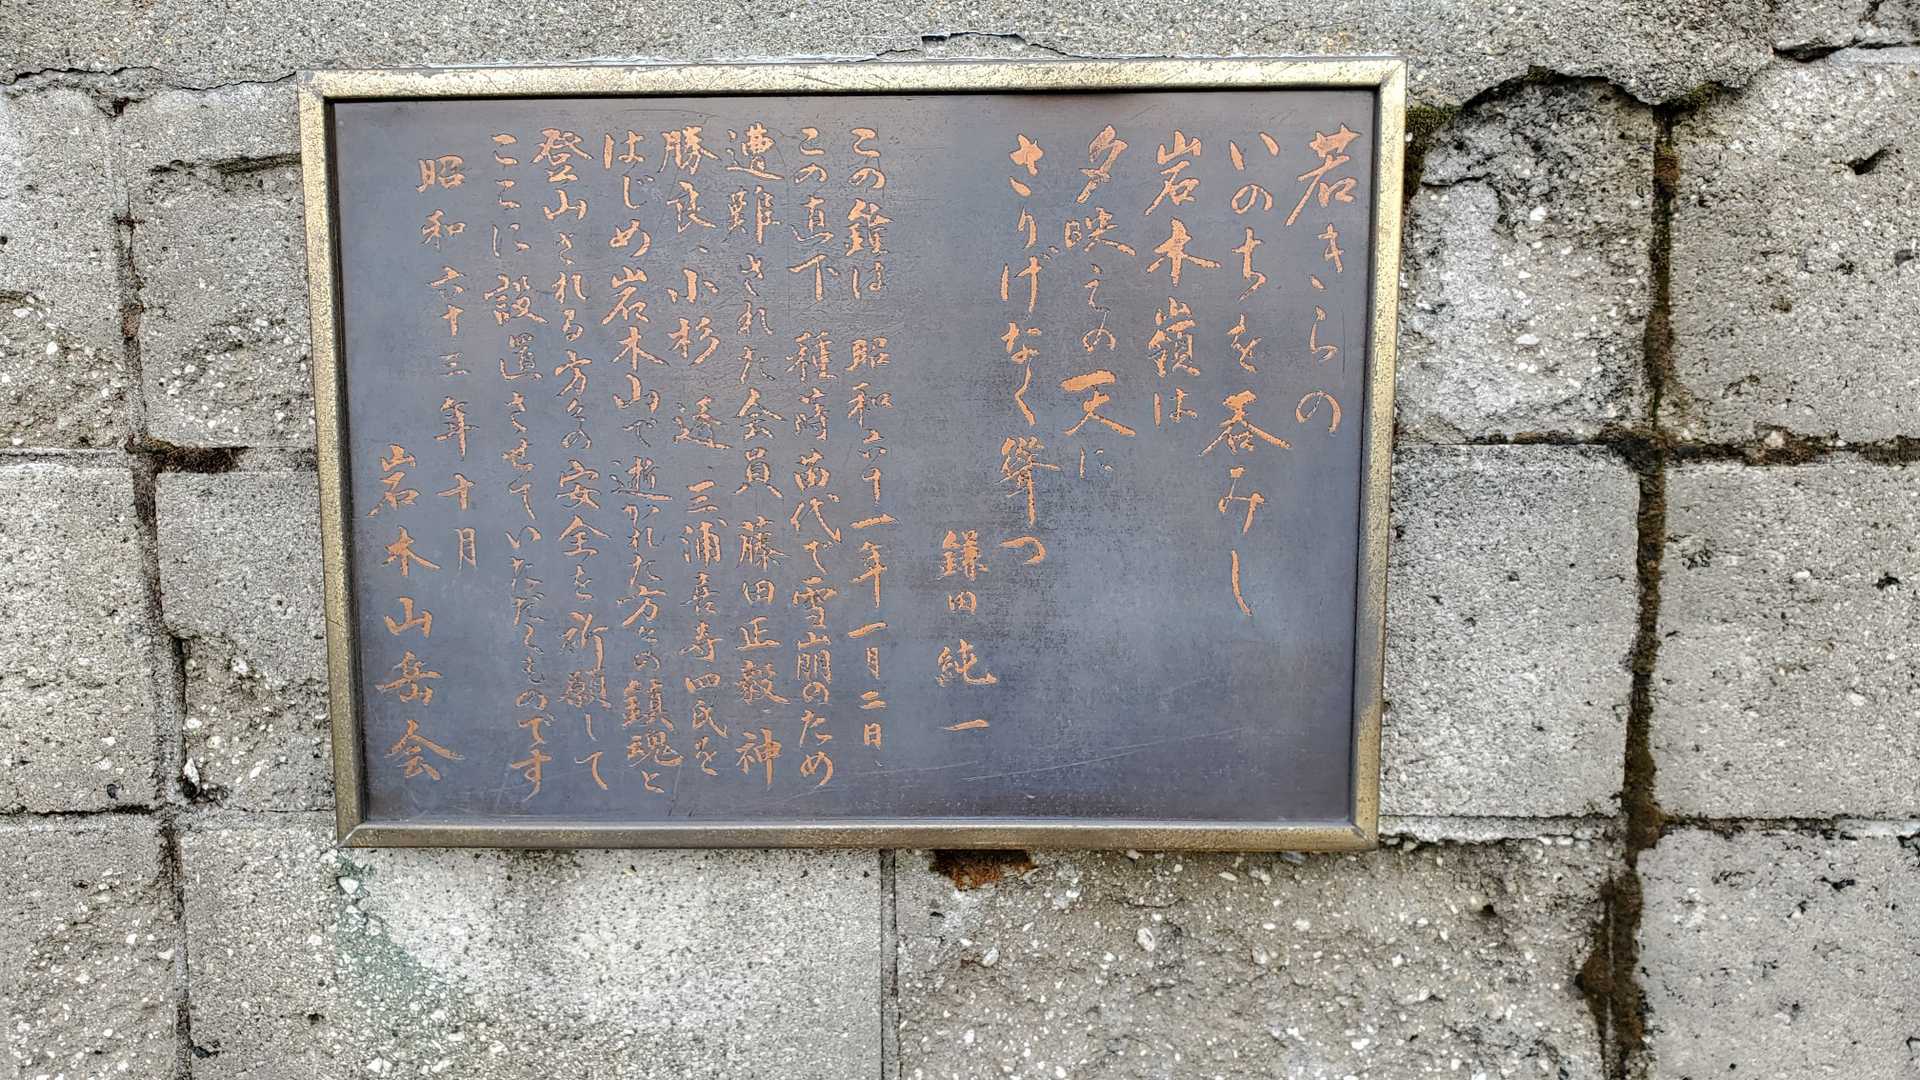 若きらの
いのちを呑みし
岩木嶺は
夕映えの天に
さりげなく聳つ
鎌田純一
この鐘は 昭和六十一年一月二日、
この真下、種蒔苗代で雪崩のため
遭難された会員 藤田正毅、神
勝良、小杉 逺 三浦喜寿四氏を
はじめ岩木山で逝かれた方々の鎮魂と
登山される方々の安全を祈願して
ここに設置させていただくものです
昭和六十三年十月
岩木山岳会